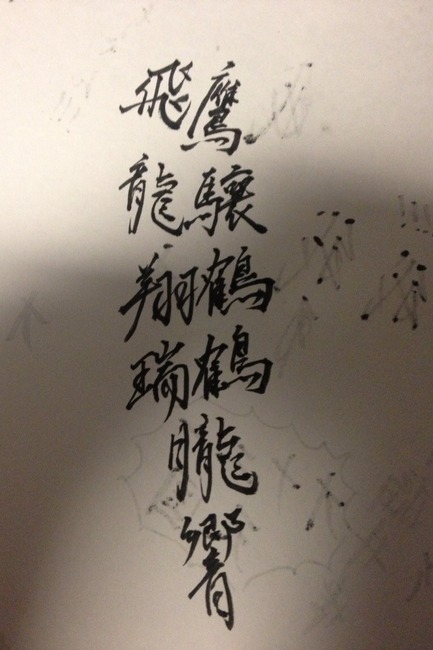 鷹驤鶴鶴朧響
飛龍翔瑞